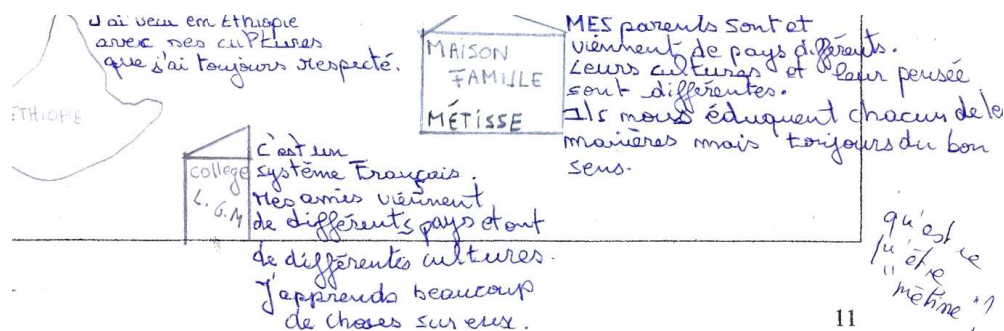 J'ai vécu en Ethiopie
avec ses cultures
que j'ai toujours respecté.
ETHIOPIE
MAISON
FAMILLE
MÉTISSE
MES parents sont et
viennent de pays différents.
Leurs cultures et leur pensée
sont différentes.
Ils nous éduquent chacun de
manières mais toujours du bon
sens.
college
L.G.M
C'est un
système Français.
Mes amies viennent
de différents pays et ont
de différentes cultures.
J'apprends beaucoup
de choses sur eux.
qu'est ce
qu'être
"métisse"?
11